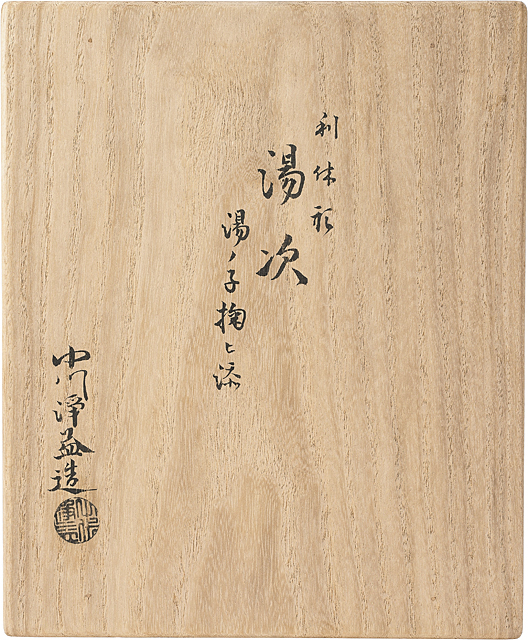 利休形
湯次
湯ノ子掬ヒ添
中川浄益造